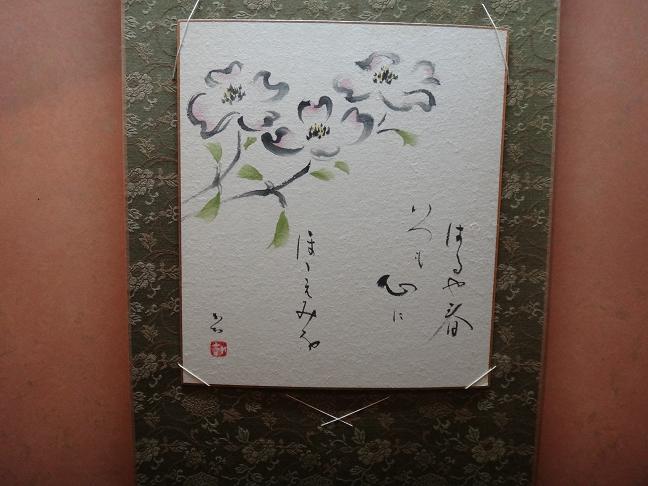 はるや春
いつも心に
ほゝえみを